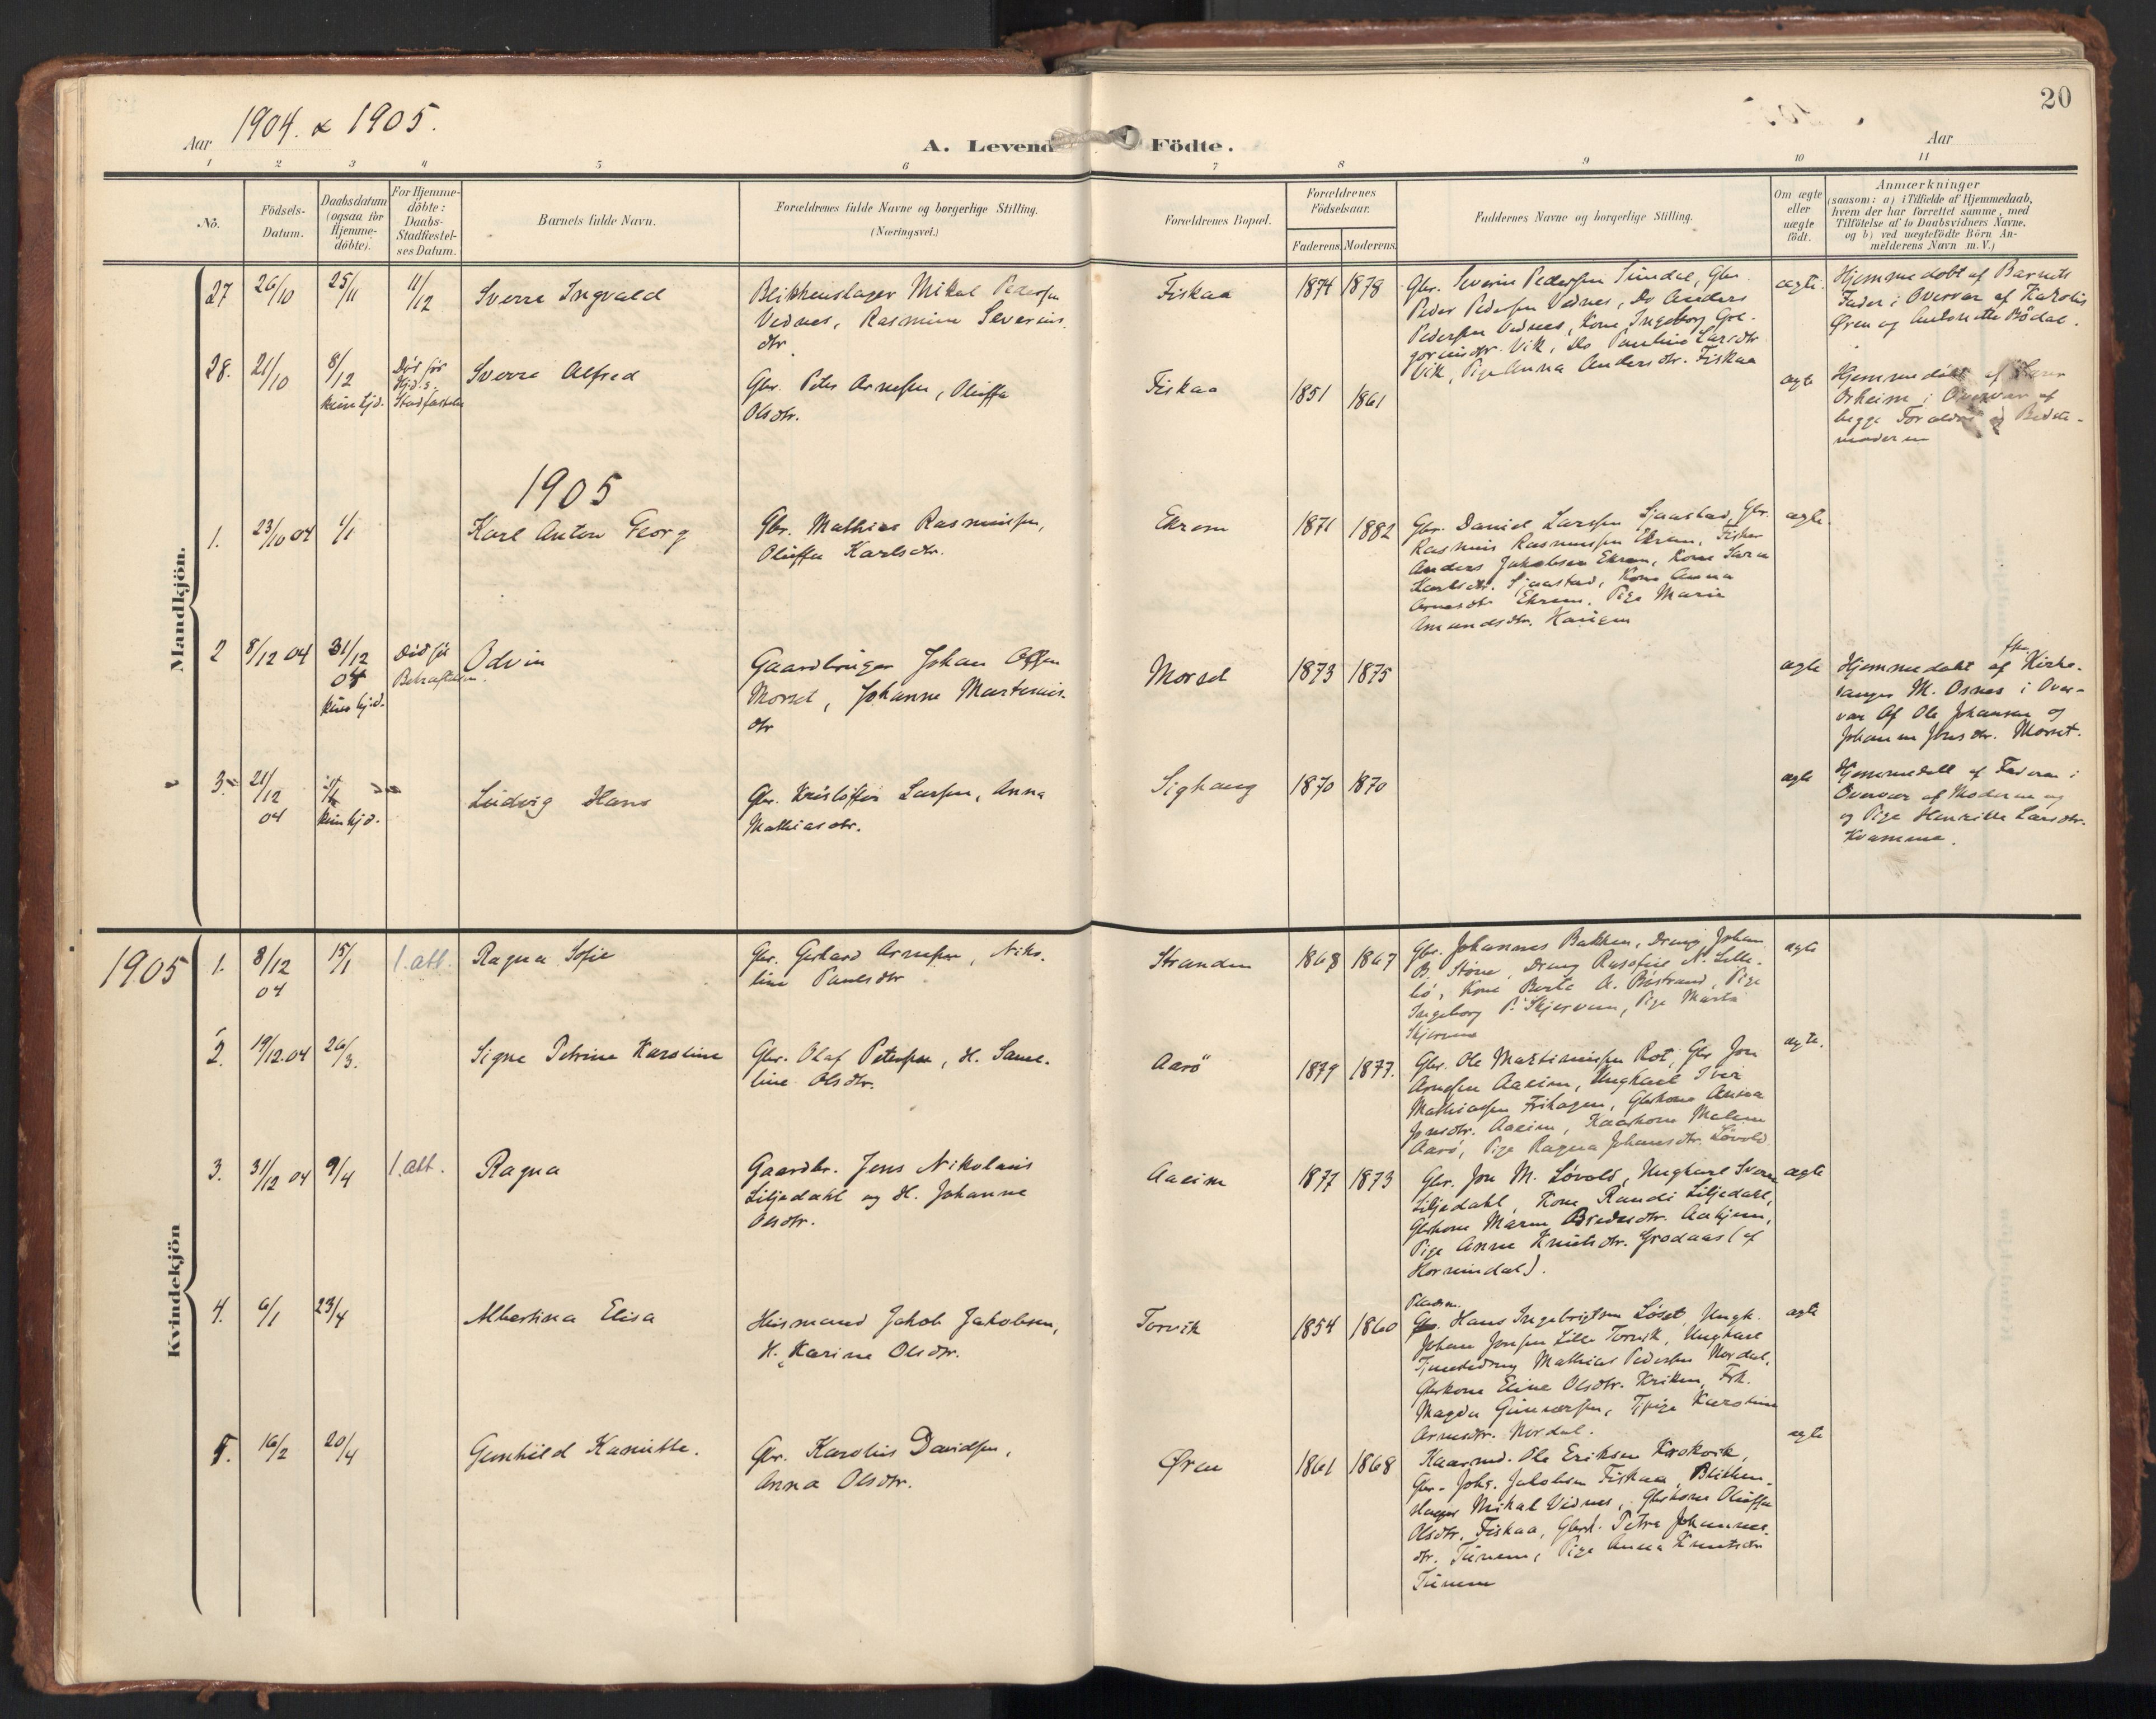 20
Aar 1904. & 1905.
A. Levende Födte.
Aar
1 2 3 4 5 6 7 8 9 10 11
No.
Födsels-Datum.
Daabsdatum (ogsaa for Hjemme-döbte).
For Hjemme-döbte: Daabs-Stadfæstel-ses Datum.
Barnets fulde Navn.
Forældrenes fulde Navne og borgerlige Stilling.
(Næringsvei.)
Forældrenes Bopæl.
Forældrenes Födselsaar.
Faderens. Moderens.
Faddernes Navne og borgerlige Stilling.
Om ægte eller uægte födt.
Anmærkninger
(saasom: a) i Tilfælde af Hjemmedaab,
hvem der har forrettet samme, med
Tilföielse af to Daabsvidners Navne,
og b) ved uægtefödte Börn An-
melderens Navn m. V.)
Mandkjön.
27 26/10 25/11 11/12 Sverre Ingvald
Blikkenslager Mikal Pedersen
Vidnes, Rasmine Severins
dtr.
Fiskaa 1874 1878
Gbr. Severin Pedersen Sundal, Gbr.
Peder Pedersen Vidnes, Do Anders
Pedersen Vidnes, Kone Ingeborg Gre-
goriusdtr. Vik, Do Pauline Larsdtr
Vik, Pige Anna Andersdtr. Fiskaa
ægte.
Hjemmedøbt af Barnets
Fader i Overvær af Karolis
Øren og Antonette Bødal.
28. 21/10 8/12 kun hjd.
Død før
Hjd.s
Stadfæstelse
Sverre Alfred
Gbr. Peter Arnesen, Oluffa
Olsdtr.
Fiskaa 1851 1861
ægte
Hjemmedøbt af
Orheim i Overvær af
begge Forældre og Bedste-
moderen
1905
1. 23/10 04 1/1 Karl Anton Georg
Gbr. Mathias Rasmussen,
Oluffa Karlsdtr.
Ekrem 1871 1882
Gbr. Daniel Larssen Sjaastad, Gbr.
Rasmus Rasmussen Ekrem, Fisker
Anders Jakobsen Ekrem, Kone Sara
Karlsdtr. Sjaastad, Kone Anna
Arnesdtr Ekrem, Pige Marie
Amundsdtr. Haugen
ægte.
2 8/12 04 31/12 04 kun hjd.
Død før
Bekræftelsen.
Odvin
Gaardbruger Johan Olsen
Morset, Johanne Martinus-
dtr
Morset 1873 1875
ægte
Hjemmedøbt af fhv. Kirke-
sanger M. Osnes i Over-
vær Af Ole Johansen og
Johanne Jonsdtr. Morset.
3. 21/12 04 kun hjd.
Ludvig Hans
Gbr. Kristoffer Larsen, Anna
Mathiasdtr.
Sighaug 1870 1870
ægte
Hjemmedøbt af Faderen i
Overvær af Moderen og
og Pige Henrikke Larsdtr.
Kvamme.
Kvindekjön
1905
1. 8/12 04 15/1 1. att.
Ragna Sofie
Gbr. Gerhard Arnesen, Niko-
line Paulsdtr
Stranden 1868 1867
Gbr. Johannes Bakken, Dreng Johan
B. Støve, Dreng Rasmus N. Lille-
bø, Kone Berte A. Bøstrand, Pige
Ingeborg P. Skjerven, Pige Marta
Skjerven
ægte
2. 19/12.04 26/3.
Signe Petrine Karoline
Gbr. Olaf Petersen, H. Sanne-
line Olsdtr.
Aarø 1879 1877.
Gbr. Ole Martinussen Rot, Gbr Jon
Arnesen Aaeim, Ungkarl Iver
Mathiassen Frihagen, Gbrkone Anna
Jonsdtr. Aaeim, Kaarkone Malene
Aarø, Pige Ragna Johansdtr. Løvold
ægte.
3. 31/12 04 9/4 1. att.
Ragna
Gaardbr. Jens Nikolaus
Liljedahl og H. Johanne
Olsdtr.
Aaeim 1877 1873
Gbr. Jon M. Løvold, Ungkarl Sverre
Liljedahl, Kone Randi Liljedahl,
Gbrkone Maren Bredesdtr. Aahjem,
Pige Anne Knutsdtr. Grodaas (af
Hornindal).
ægte
4. 6/1 23/4
Albertina Elisa
Husmand Jakob Jakobsen,
H. Karine Olsdtr.
Torvik 1854 1860
Pladsm.
Gbr. Hans Ingebrigtsen Løset, Ungk.
Johan Jonsen Lille Torvik, Ungkarl
Tjenestedreng Mathias Pedersen Nordal,
Gbrkone Eline Olsdtr. Kriken, Frk.
Magda Gunnersen, Tjpige Karoline
Arnesdtr. Nordal.
ægte
5. 16/2 20/4
Gunhild Kamitte.
Gbr. Karolus Davidsen,
Anna Olsdtr.
Øren 1861 1868
Kaarmd. Ole Eriksen Krokvik,
Gbr. Johs. Jakobsen Fiskaa, Blikken-
slager Mikal Vidnes, Gbrkone Oluffa
Olsdtr. Fiskaa, Gbrd. Petra Johannes-
dtr. Tunem, Pige Anna Knutsdtr
Tunem
ægte